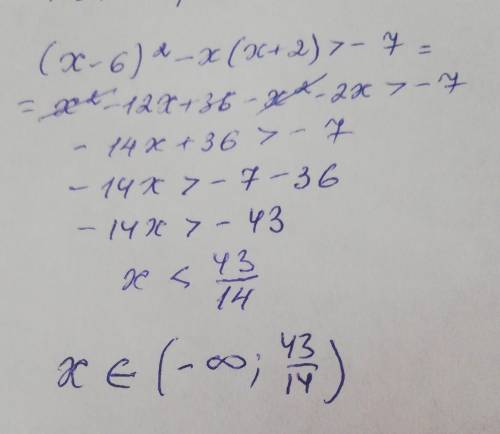 (x-6)² - x(x+2) > - 7 =
= x² - 12x + 36 - x² - 2x > - 7
- 14x + 36 > - 7
- 14x > - 7 - 36
- 14x > - 43
x < 43/14
x ∈ (-∞; 43/14)